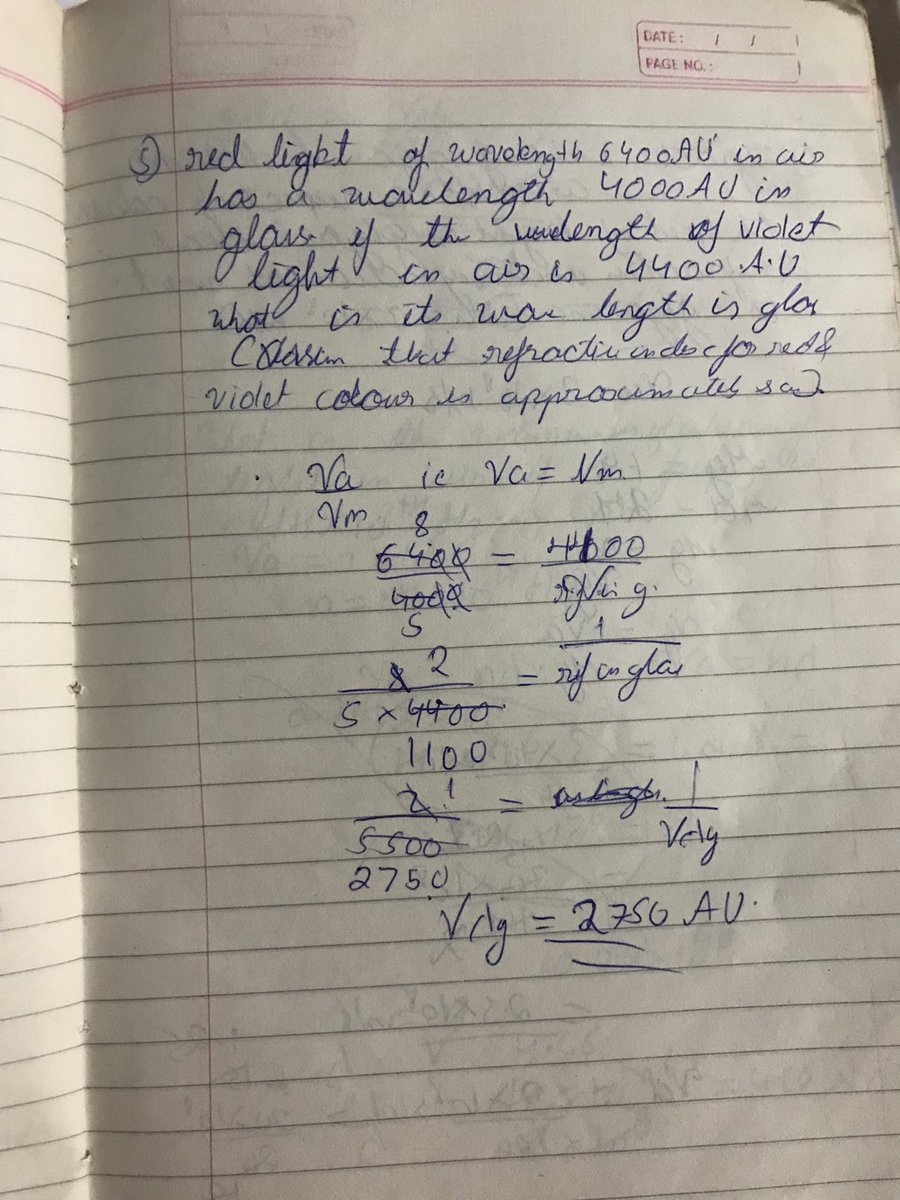 DATE: / /
PAGE NO.:
5) red light of wavelength 6400AU in air
has a wavelength 4000AU in
glass if the wavelength of violet
light in air is 4400 A.U
what is its wave length is glas
that refractive index for red &
violet colour is approximately
Va/Vm ie Va = Vm
8
6400/4000 = 4400/ g.
5
8 2/5 x 4400 = 1/ in glas
1100
2 1/5500 = 1/Vλg
2750
Vλg = 2750 AU.